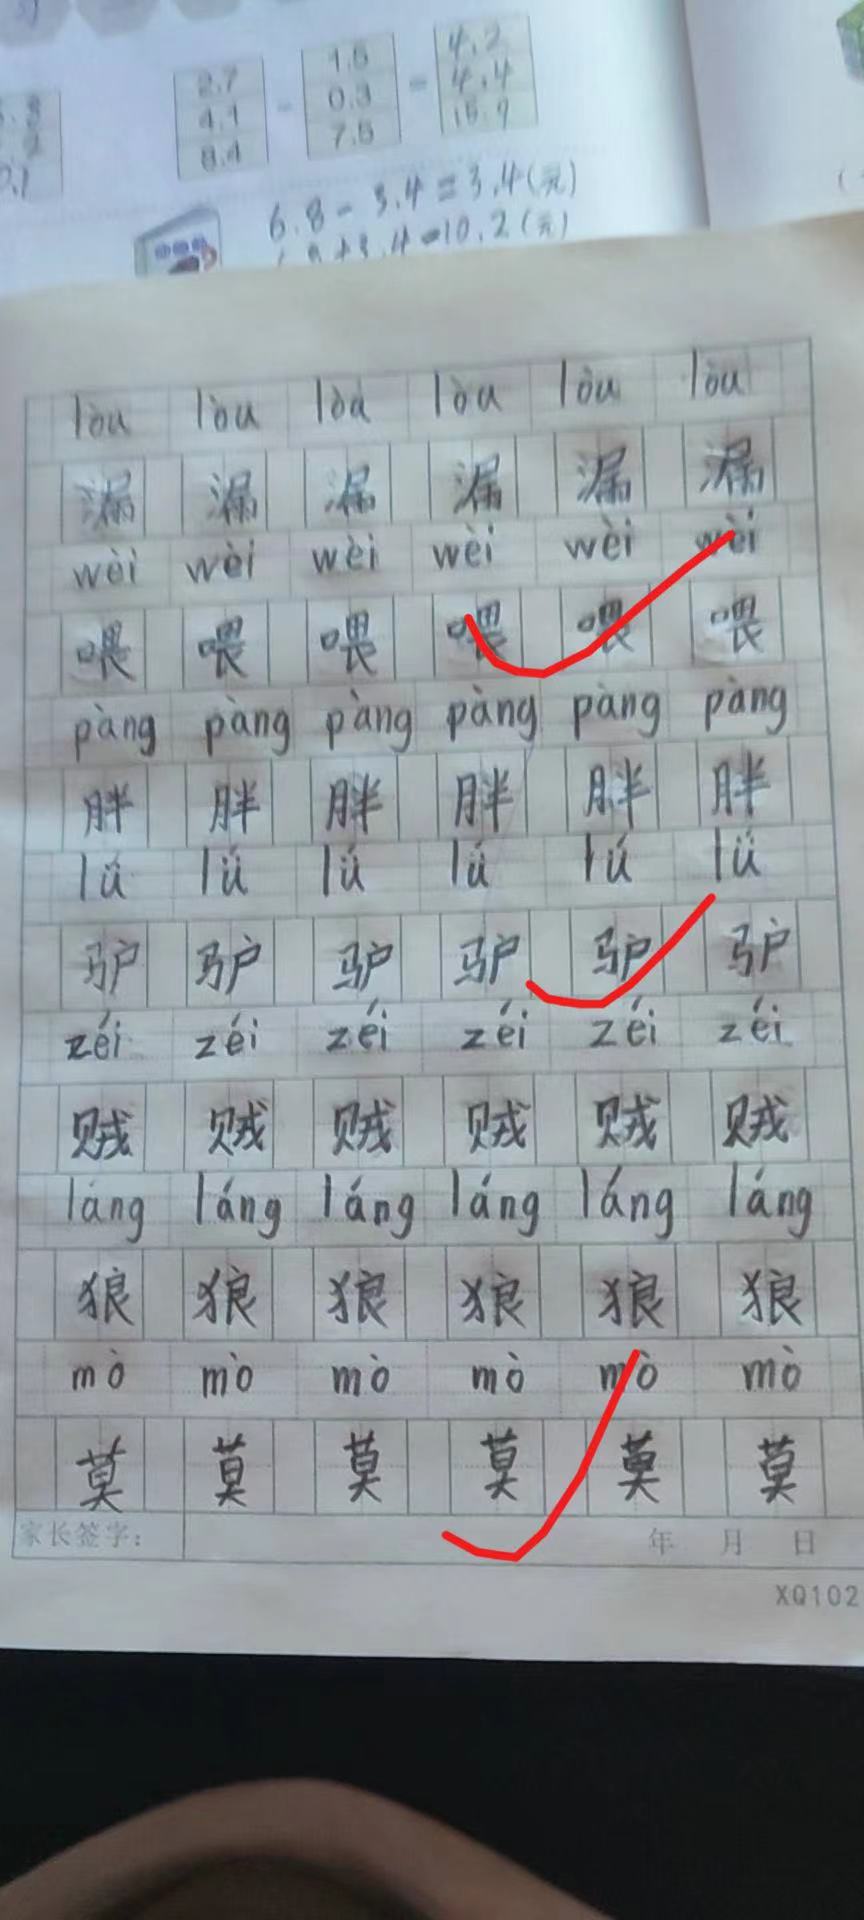 2.7 1.5 4.2
4.1 - 0.3 = 4.4
8.4 7.5 15.9
6.8 - 3.4 = 3.4(元)
6.8+3.4=10.2(元)
lòu lòu lòu lòu lòu lòu
漏 漏 漏 漏 漏 漏
wèi wèi wèi wèi wèi wèi
喂 喂 喂 喂 喂 喂
pàng pàng pàng pàng pàng pàng
胖 胖 胖 胖 胖 胖
lǘ lǘ lǘ lǘ lǘ lǘ
驴 驴 驴 驴 驴 驴
zéi zéi zéi zéi zéi zéi
贼 贼 贼 贼 贼 贼
láng láng láng láng láng láng
狼 狼 狼 狼 狼 狼
mò mò mò mò mò mò
莫 莫 莫 莫 莫 莫
家长签字： 年 月 日
XQ102